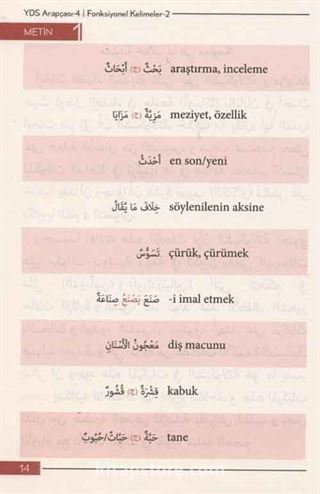 YDS Arapçası-4 | Fonksiyonel Kelimeler-2
METİN 1
بَحْثٌ (ج) أَبْحَاثٌ araştırma, inceleme
مَزِيَّةٌ (ج) مَزَايَا meziyet, özellik
أَحْدَثُ en son/yeni
خِلَافَ مَا يُقَالُ söylenilenin aksine
تَسَوُّسٌ çürük, çürümek
صَنَعَ يَصْنَعُ صِنَاعَةً -i imal etmek
مَعْجُونُ الْأَسْنَانِ diş macunu
قِشْرَةٌ (ج) قُشُورٌ kabuk
حَبَّةٌ (ج) حَبَّاتٌ/حُبُوبٌ tane
14